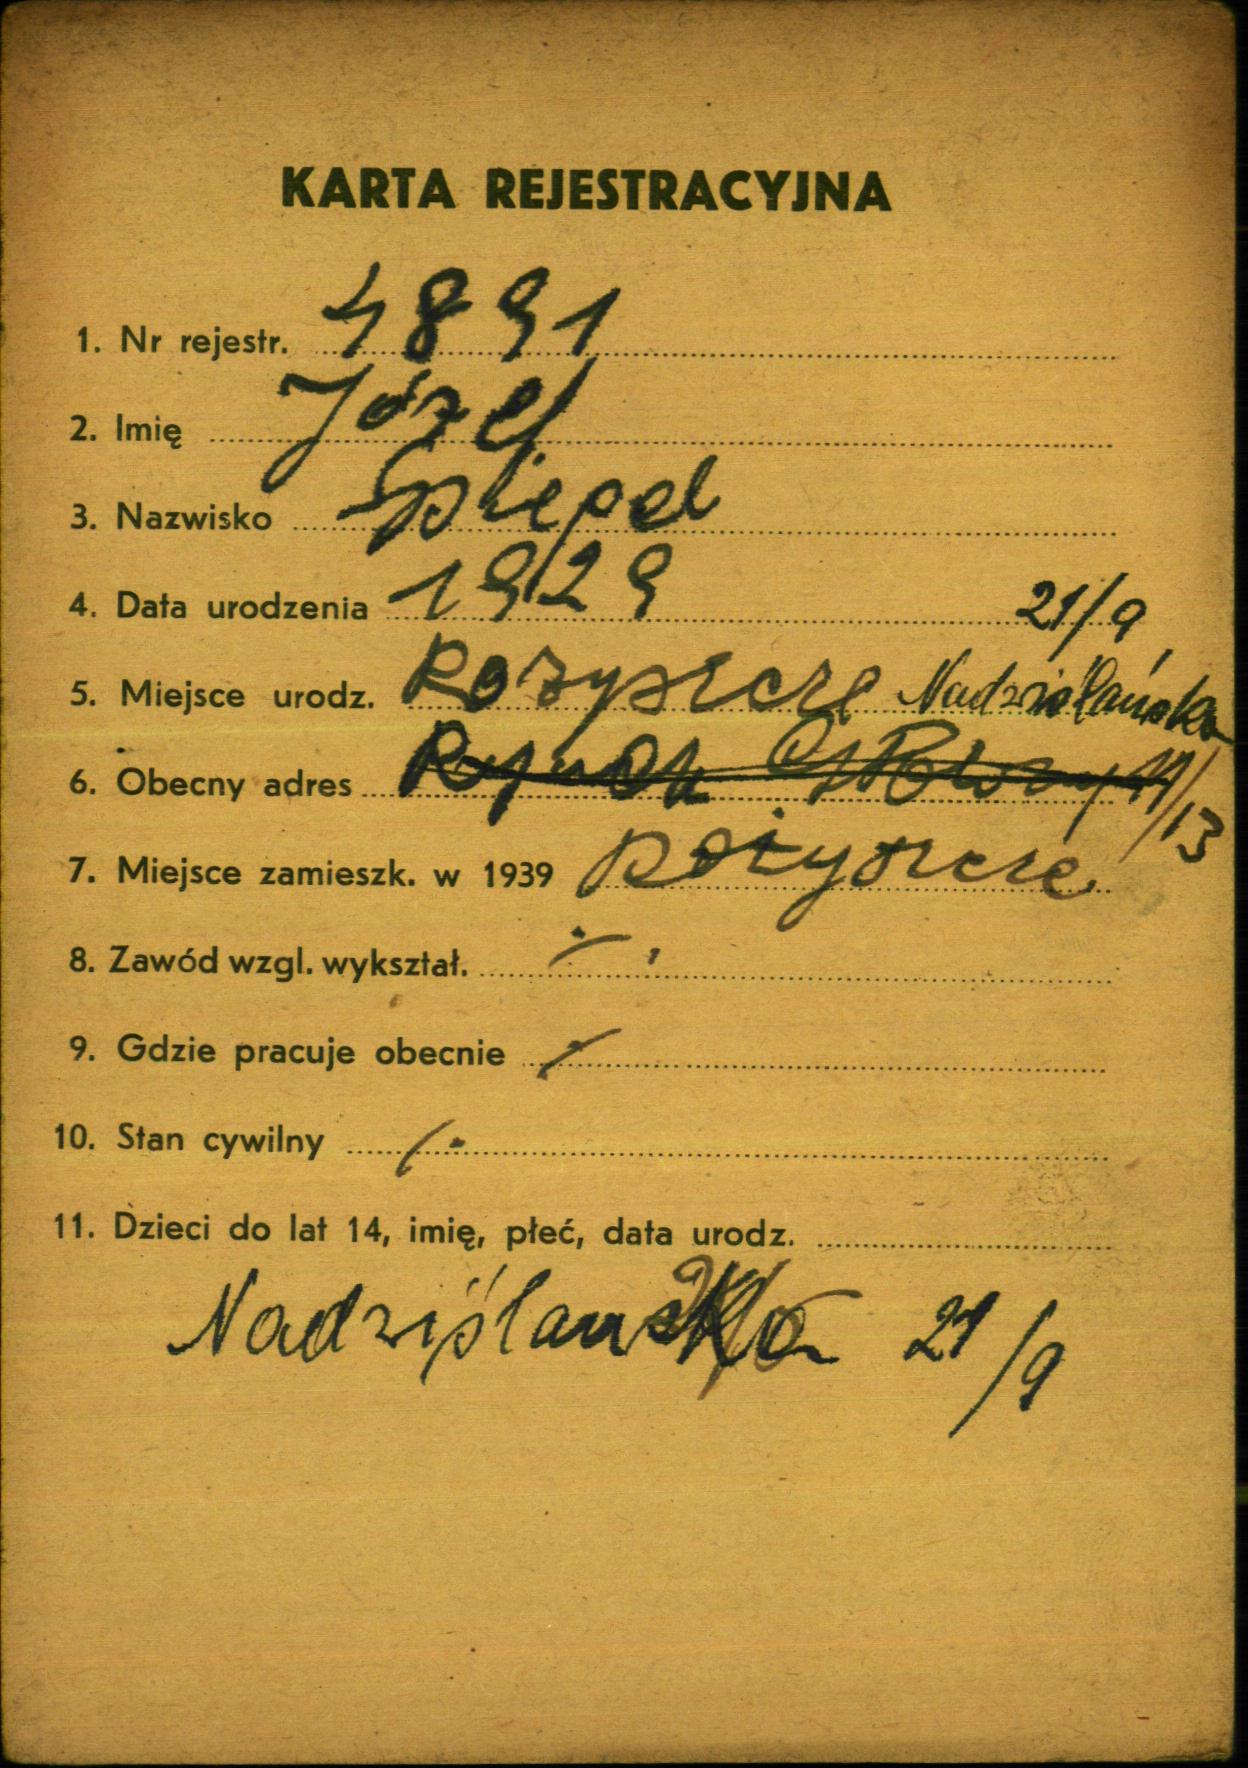 KARTA REJESTRACYJNA
1. Nr rejestr. 4891
2. Imię Józef
3. Nazwisko Spiegel
4. Data urodzenia 1929 21/9
5. Miejsce urodz. Rożyszcze Nadziślańska
6. Obecny adres Rynek 11/13
7. Miejsce zamieszk. w 1939 Rożyszcze
8. Zawód wzgl. wykształ.
9. Gdzie pracuje obecnie
10. Stan cywilny
11. Dzieci do lat 14, imię, płeć, data urodz.
Nadziślańska 21/9